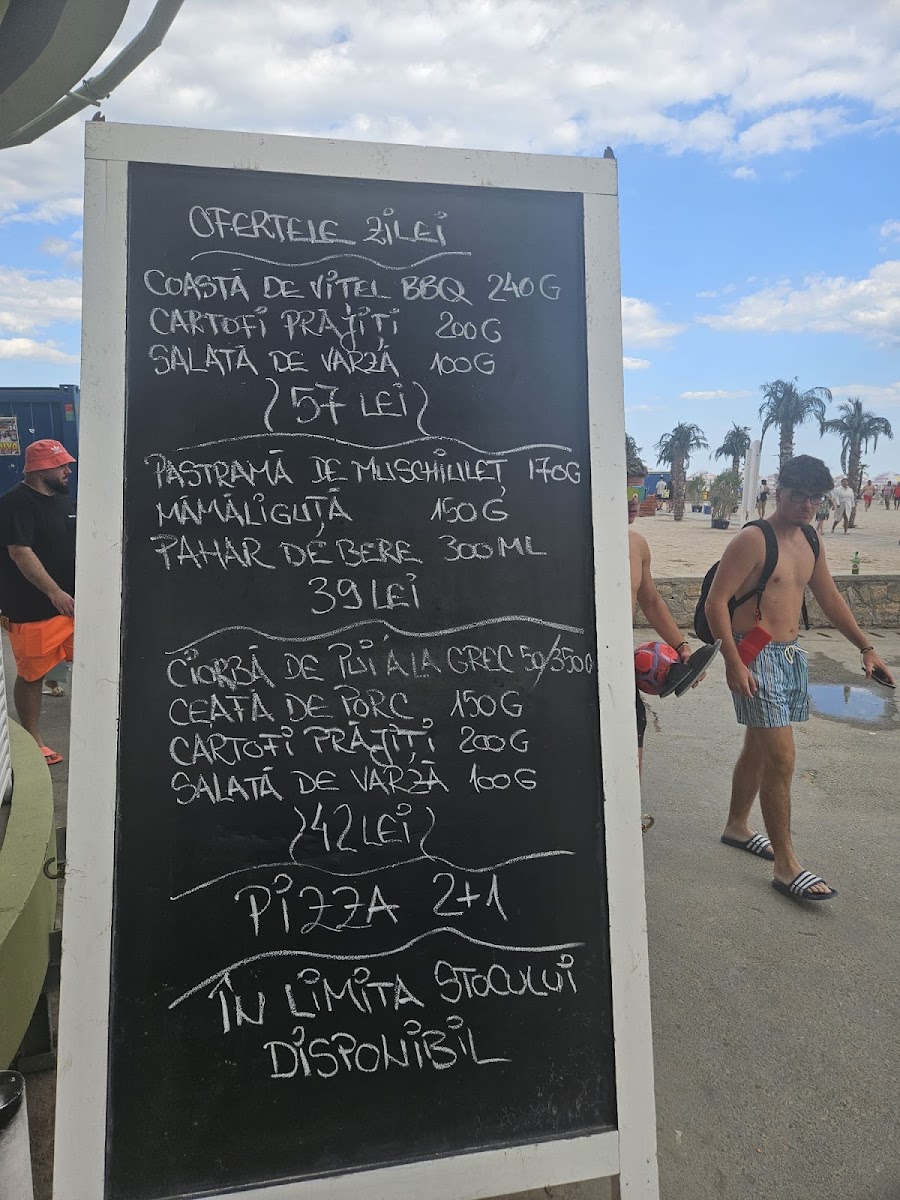 OFERTELE ZILEI
COASTĂ DE VITEL BBQ 240G
CARTOFI PRĂJIȚI 200G
SALATĂ DE VARZĂ 100G
(57 LEI)
PASTRAMĂ DE MUSCHIULEȚ 170G
MĂMĂLIGUȚĂ 150G
PAHAR DE BERE 300 ML
39 LEI
CIORBĂ DE PUI A LA GREC 50/350G
CEAFĂ DE PORC 150G
CARTOFI PRĂJIȚI 200G
SALATĂ DE VARZĂ 100G
(42 LEI)
PIZZA 2+1
ÎN LIMITA STOCULUI
DISPONIBIL